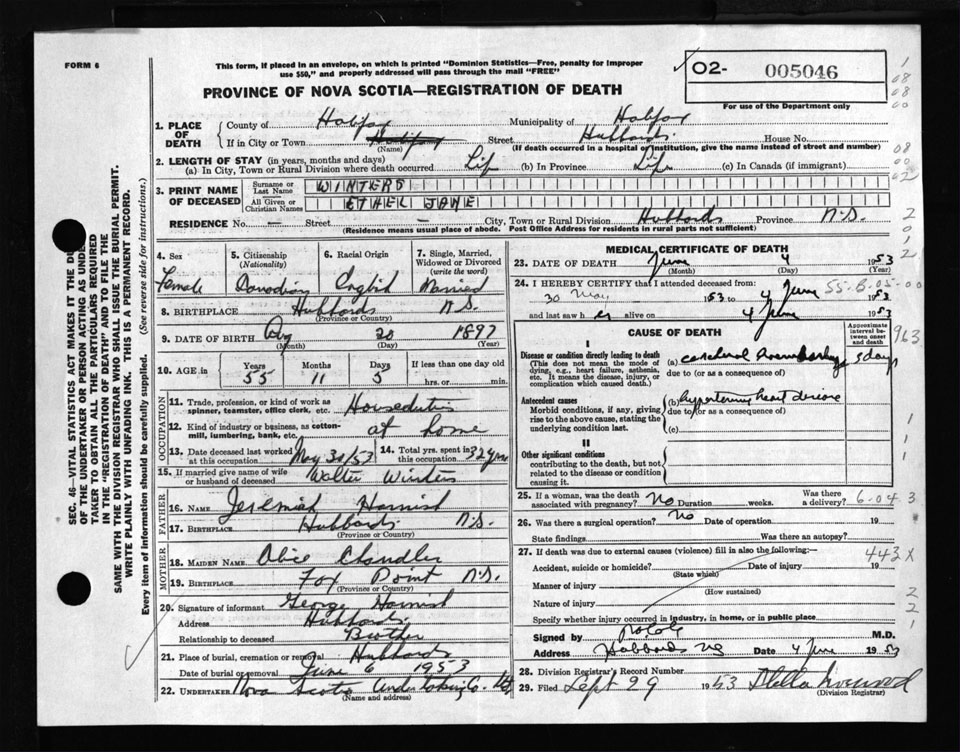 FORM 6
This form, if placed in an envelope, on which is printed "Dominion Statistics—Free, penalty for improper
use $50," and properly addressed will pass through the mail "FREE"
PROVINCE OF NOVA SCOTIA—REGISTRATION OF DEATH
O2- 005046
For use of the Department only
1. PLACE OF DEATH
County of Halifax Municipality of Halifax
If in City or Town Halifax Street Hubbards. House No.
(Name) (If death occurred in a hospital or institution, give the name instead of street and number)
2. LENGTH OF STAY (in years, months and days)
(a) In City, Town or Rural Division where death occurred Life (b) In Province Life (c) In Canada (if immigrant)
3. PRINT NAME OF DECEASED
Surname or Last Name WINTERS
All Given or Christian Names ETHEL JANE
RESIDENCE No. — Street — City, Town or Rural Division Hubbards Province N.S.
(Residence means usual place of abode. Post Office Address for residents in rural parts not sufficient)
SEC. 46—VITAL STATISTICS ACT MAKES IT THE
OF THE UNDERTAKER OR PERSON ACTING AS
TAKER TO OBTAIN ALL THE PARTICULARS REQUIRED
IN THE "REGISTRATION OF DEATH" AND TO FILE THE
SAME WITH THE DIVISION REGISTRAR WHO SHALL ISSUE THE BURIAL PERMIT.
WRITE PLAINLY WITH UNFADING INK. THIS IS A PERMANENT RECORD.
Every item of information should be carefully supplied. (See reverse side for instructions.)
4. Sex Female
5. Citizenship (Nationality) Canadian
6. Racial Origin English
7. Single, Married, Widowed or Divorced (write the word) Married
8. BIRTHPLACE Hubbards N.S.
(Province or Country)
9. DATE OF BIRTH 30 1897
(Month) (Day) (Year)
10. AGE in Years 55 Months 11 Days 5 If less than one day
hrs. or min.
OCCUPATION
11. Trade, profession, or kind of work as spinner, teamster, office clerk, etc. Houseduties
12. Kind of industry or business, as cotton-mill, lumbering, bank, etc. at home
13. Date deceased last worked at this occupation May 30/53
14. Total yrs. spent in this occupation 32 yrs
15. If married give name of wife or husband of deceased Walter Winters
FATHER
16. Name Jeremiah Harnish
17. Birthplace Hubbards N.S.
(Province or Country)
MOTHER
18. MAIDEN NAME Alice Chandler
19. Birthplace Fox Point N.S.
(Province or Country)
20. Signature of informant George Harnish
Address Hubbards
Relationship to deceased Brother
21. Place of burial, cremation or removal Hubbards
Date of burial or removal June 6 1953
22. UNDERTAKER Nova Scotia Undertaking Co. Ltd
(Name and address)
MEDICAL CERTIFICATE OF DEATH
23. DATE OF DEATH June 4 1953
(Month) (Day) (Year)
24. I HEREBY CERTIFY that I attended deceased from:
30 May 1953 to 4 June 1953
and last saw her alive on 4 June 1953
CAUSE OF DEATH
Approximate interval between onset and death
I
Disease or condition directly leading to death
(This does not mean the mode of dying, e.g., heart failure, asthenia, etc. It means the disease, injury, or complication which caused death.)
(a) cerebral haemorrhage 5 days
due to (or as a consequence of)
Antecedent causes
Morbid conditions, if any, giving rise to the above cause, stating the underlying condition last.
(b) hypertensive heart disease
due to (or as a consequence of)
(c)
II
Other significant conditions
contributing to the death, but not related to the disease or condition causing it.
25. If a woman, was the death associated with pregnancy? No Duration weeks. Was there a delivery?
26. Was there a surgical operation? No Date of operation 19
State findings Was there an autopsy?
27. If death was due to external causes (violence) fill in also the following:—
Accident, suicide or homicide? Date of injury 19
(State which)
Manner of injury
(How sustained)
Nature of injury
Specify whether injury occurred in industry, in home, or in public place
Signed by M.D.
Address Hubbards NS Date 4 June 1953
28. Division Registrar's Record Number
29. Filed Sept 29 1953
(Division Registrar)
963
6-043
443X